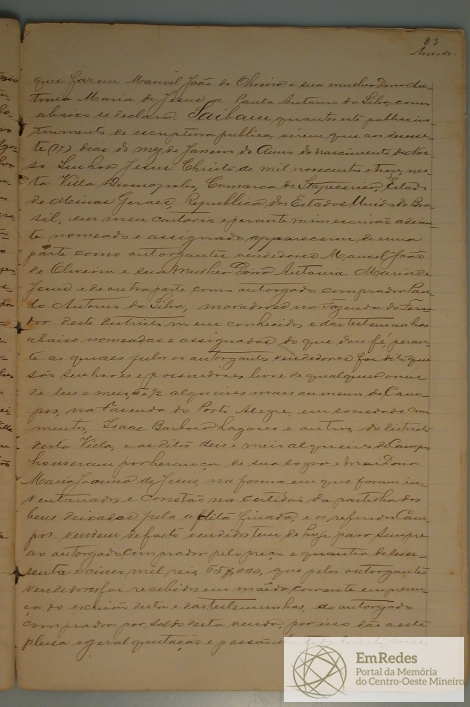 83
que fazem Manuel João de Oliveira e sua mulher Dona An-
tonia Maria de Jesus a Paulo Antonio da Silva, como
abaixo se declara. Saibam quantos este publico ins-
trumento de escriptura publica virem que aos desese-
te (17) dias do mez de Janeiro do Anno do nascimento de Nos-
so Senhor Jesus Christo de mil novecentos e treze, nes-
ta Villa Comarca de Estado
de Minas Geraes, Republica dos Estados Unidos do Bra-
sil, em meu cartorio e perante mim escrivão adian-
te nomeado e assignado appareceram de uma
parte como outorgantes vendedores Manuel João
de Oliveira e sua mulher Dona Antonia Maria de
Jesus e de outra parte como outorgado comprador Pau-
lo Antonio da Silva, moradores na Fazenda do
deste districto meus conhecidos e das testemunhas
abaixo nomeadas e assignadas do que dou fé, peran-
te as quaes pelos os outorgantes vendedores foi dito que
são senhores e possuidores livre de qualquer onus
de seis e meio, 6 1/2 alqueires mais ou menos de Cam-
pos, na Fazenda do Porto Alegre, em sociedade com
Isaac Barbosa e outros, do districto
desta Villa, e os ditos seis e meio alqueires de Campos
houveram por herança de sua sogra e mãe Dona
Maria de Jesus, na forma em que foram in-
ventariados e constão na certidão da partilha dos
bens deixados pela a dita finada, e os referidos Cam-
pos vendem de facto vendidos tem de hoje para sempre
ao outorgado comprador pelo preço e quantia de sesen-
senta e cinco mil reis 65$000, que pelos outorgantes
vendedores foi recebidos em moéda corrente em presen-
ça do escrivão desta e das testemunhas, do outorgado
comprador por saldo desta venda, por isso dão a este
plena e geral quitação e passão
EmRedes
Portal da Memória
do Centro-Oeste Mineiro